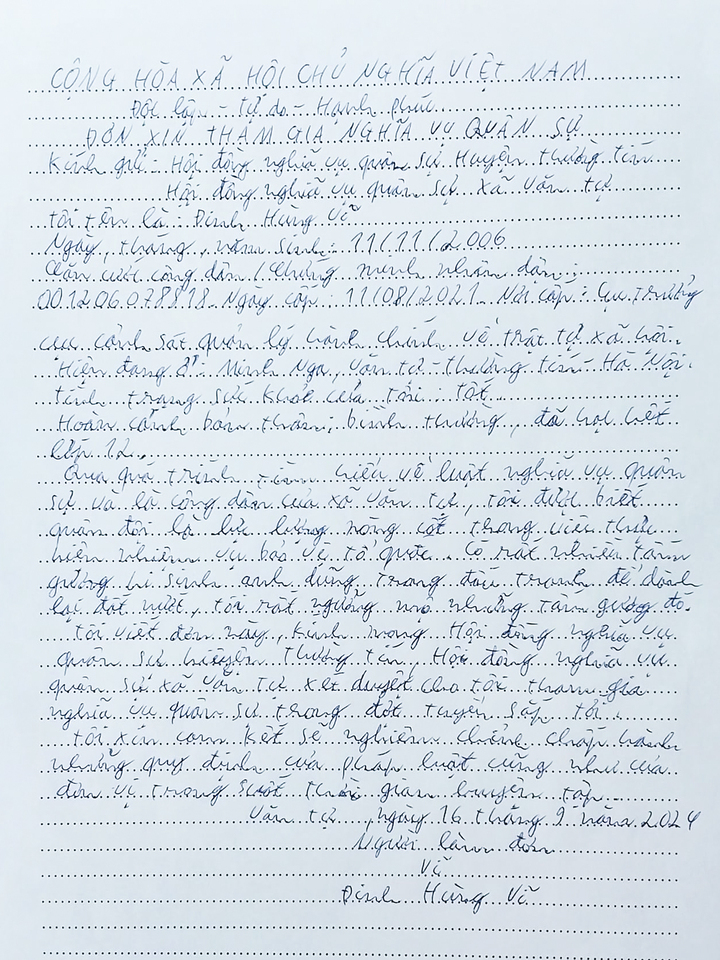 CỘNG HÒA XÃ HỘI CHỦ NGHĨA VIỆT NAM
Độc lập - Tự do - Hạnh phúc
ĐƠN XIN THAM GIA NGHĨA VỤ QUÂN SỰ
Kính gửi: Hội đồng nghĩa vụ quân sự Huyện thường tín
Hội đồng nghĩa vụ quân sự xã Văn tự
tôi tên là: Đinh Hùng Vĩ
Ngày, tháng, năm sinh: 11/11/2006
Căn cước công dân / Chứng minh nhân dân:
001206078818 Ngày cấp: 11/08/2021 Nơi cấp: Cục trưởng
cục cảnh sát quản lý hành chính về trật tự xã hội.
Hiện đang ở: Minh Nga, Văn tự - thường tín - Hà Nội.
tình trạng sức khỏe của tôi: tốt
Hoàn cảnh bản thân: bình thường, đã học hết
lớp 12.
Qua quá trình tìm hiểu về luật nghĩa vụ quân
sự và là công dân của xã Văn tự, tôi được biết
quân đội là lực lượng nòng cốt trong việc thực
hiện nhiệm vụ bảo vệ tổ quốc. Có rất nhiều tấm
gương hi sinh anh dũng trong đấu tranh để dành
lại đất nước, tôi rất ngưỡng mộ những tấm gương đó.
tôi viết đơn này, kính mong Hội đồng nghĩa vụ
quân sự huyện thường tín, Hội đồng nghĩa vụ
quân sự xã Văn tự xét duyệt cho tôi tham gia
nghĩa vụ quân sự trong đợt tuyển sắp tới.
tôi xin cam kết sẽ nghiêm chỉnh chấp hành
những quy định của pháp luật cũng như của
đơn vị trong suốt thời gian huấn luyện tập
Văn tự, ngày 16 tháng 9 năm 2024
Người làm đơn
Vĩ
Đinh Hùng Vĩ